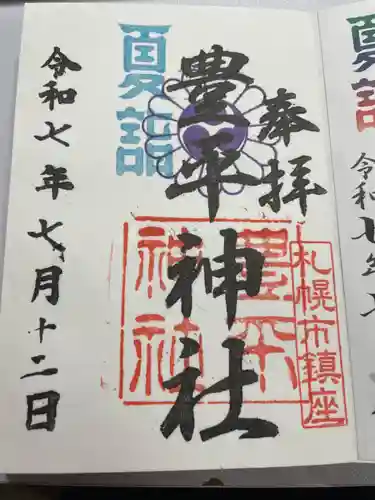 奉拝
豊平神社
夏詣
豊平
神社
札幌市鎮座
令和七年七月十二日
夏詣
令和七年七